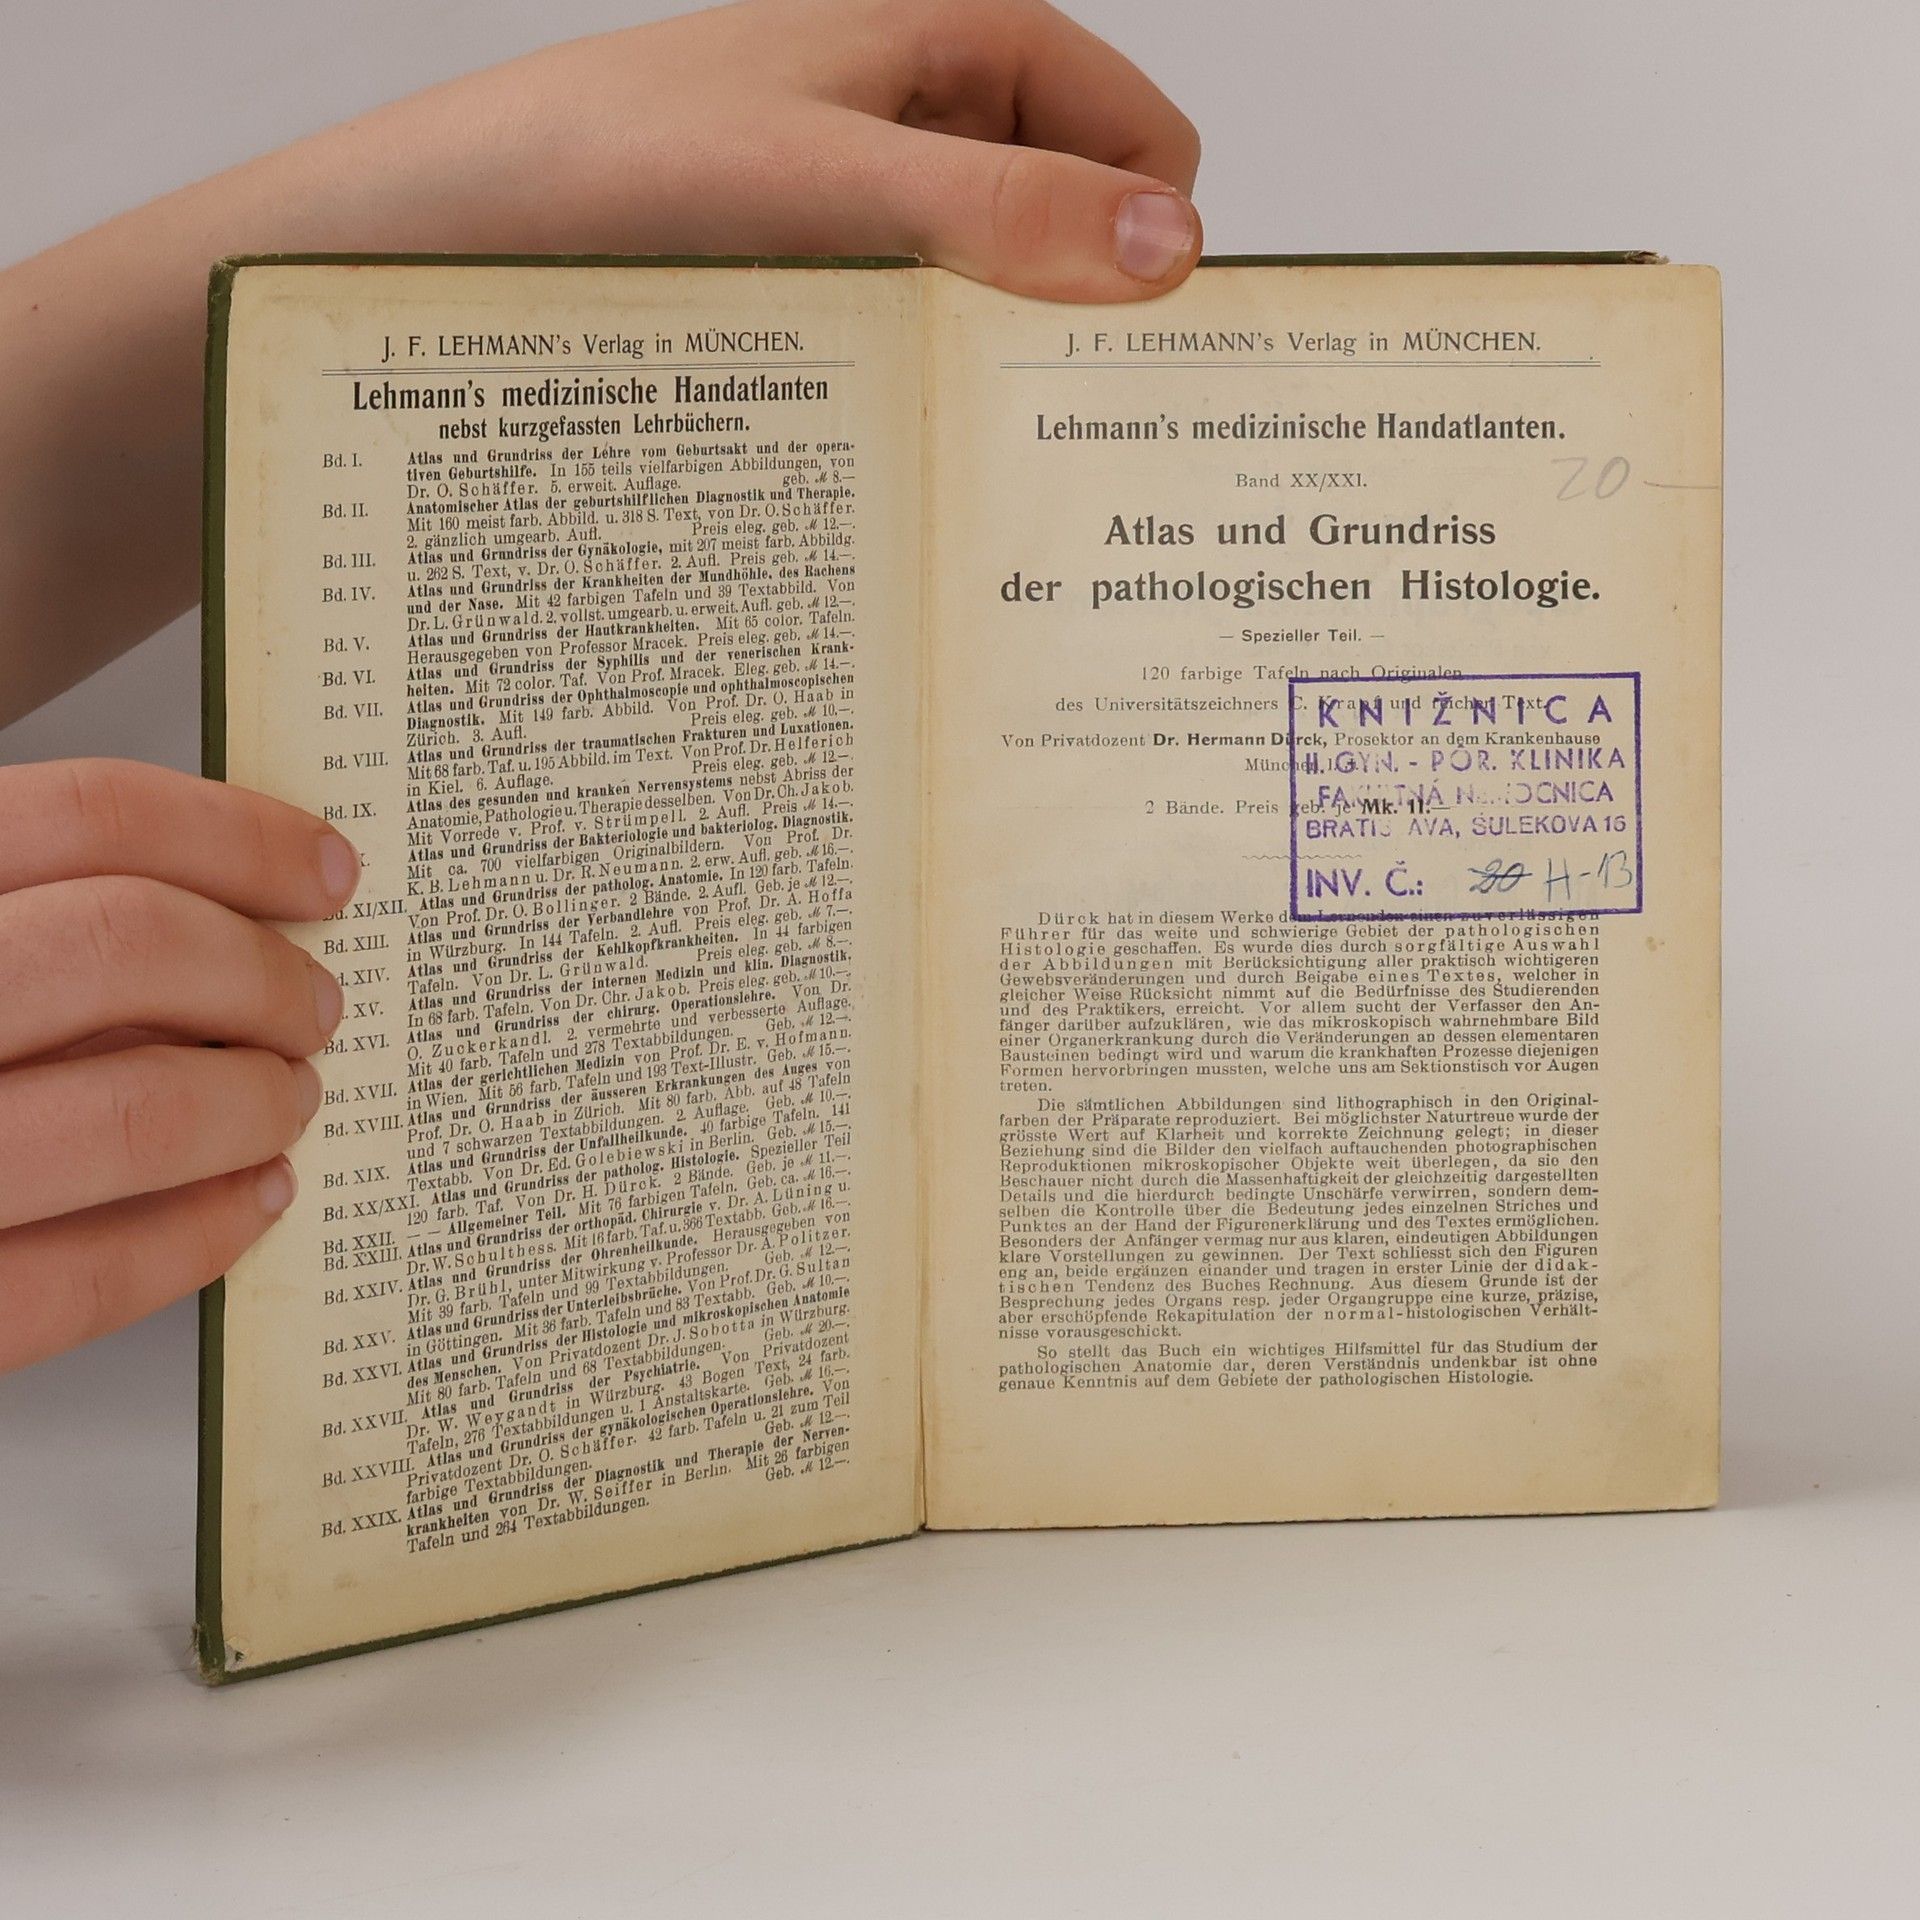 J. F. LEHMANN's Verlag in MÜNCHEN.
Lehmann's medizinische Handatlanten
nebst kurzgefassten Lehrbüchern.
Bd. I. Atlas und Grundriss der Lehre vom Geburtsakt und der opera-
tiven Geburtshilfe. In 155 teils vielfarbigen Abbildungen, von
Dr. O. Schäffer. 5. erweit. Auflage. geb. M 8.—
Bd. II. Anatomischer Atlas der geburtshilflichen Diagnostik und Therapie.
Mit 160 meist farb. Abbild. u. 318 S. Text, von Dr. O. Schäffer.
2. gänzlich umgearb. Aufl. Preis eleg. geb. M 12.—.
Bd. III. Atlas und Grundriss der Gynäkologie, mit 207 meist farb. Abbildg.
u. 262 S. Text, v. Dr. O. Schäffer. 2. Aufl. Preis geb. M 14.—.
Bd. IV. Atlas und Grundriss der Krankheiten der Mundhöhle, des Rachens
und der Nase. Mit 42 farbigen Tafeln und 39 Textabbild. Von
Dr. L. Grünwald. 2. vollst. umgearb. u. erweit. Aufl. geb. M 12.—.
Bd. V. Atlas und Grundriss der Hautkrankheiten. Mit 65 color. Tafeln.
Herausgegeben von Professor Mracek. Preis eleg. geb. M 14.—.
Bd. VI. Atlas und Grundriss der Syphilis und der venerischen Krank-
heiten. Mit 72 color. Taf. Von Prof. Mracek. Eleg. geb. M 14.—.
Bd. VII. Atlas und Grundriss der Ophthalmoscopie und ophthalmoscopischen
Diagnostik. Mit 149 farb. Abbild. Von Prof. Dr. O. Haab in
Zürich. 3. Aufl. Preis eleg. geb. M 10.—.
Bd. VIII. Atlas und Grundriss der traumatischen Frakturen und Luxationen.
Mit 68 farb. Taf. u. 195 Abbild. im Text. Von Prof. Dr. Helferich
in Kiel. 6. Auflage. Preis eleg. geb. M 12.—.
Bd. IX. Atlas des gesunden und kranken Nervensystems nebst Abriss der
Anatomie, Pathologie u. Therapie desselben. Von Dr. Ch. Jakob.
Mit Vorrede v. Prof. v. Strümpell. 2. Aufl. Preis M 14.—.
X. Atlas und Grundriss der Bakteriologie und bakteriolog. Diagnostik.
Mit ca. 700 vielfarbigen Originalbildern. Von Prof. Dr.
K. B. Lehmann u. Dr. R. Neumann. 2. erw. Aufl. geb. M 16.—.
Bd. XI/XII. Atlas und Grundriss der patholog. Anatomie. In 120 farb. Tafeln.
Von Prof. Dr. O. Bollinger. 2 Bände. 2. Aufl. Geb. je M 12.—.
Bd. XIII. Atlas und Grundriss der Verbandlehre von Prof. Dr. A. Hoffa
in Würzburg. In 144 Tafeln. 2. Aufl. Preis eleg. geb. M 7.—.
d. XIV. Atlas und Grundriss der Kehlkopfkrankheiten. In 44 farbigen
Tafeln. Von Dr. L. Grünwald. Preis eleg. geb. M 8.—.
. XV. Atlas und Grundriss der internen Medizin und klin. Diagnostik.
In 68 farb. Tafeln. Von Dr. Chr. Jakob. Preis eleg. geb. M 10.—.
Bd. XVI. Atlas und Grundriss der chirurg. Operationslehre. Von Dr.
O. Zuckerkandl. 2. vermehrte und verbesserte Auflage.
Mit 40 farb. Tafeln und 278 Textabbildungen. Geb. M 12.—.
Bd. XVII. Atlas der gerichtlichen Medizin von Prof. Dr. E. v. Hofmann.
in Wien. Mit 56 farb. Tafeln und 193 Text-Illustr. Geb. M 15.—.
Bd. XVIII. Atlas und Grundriss der äusseren Erkrankungen des Auges von
Prof. Dr. O. Haab in Zürich. Mit 80 farb. Abb. auf 48 Tafeln
und 7 schwarzen Textabbildungen. 2. Auflage. Geb. M 10.—.
Bd. XIX. Atlas und Grundriss der Unfallheilkunde. 40 farbige Tafeln. 141
Textabb. Von Dr. Ed. Golebiewski in Berlin. Geb. M 15.—.
Bd. XX/XXI. Atlas und Grundriss der patholog. Histologie. Spezieller Teil
120 farb. Taf. Von Dr. H. Dürck. 2 Bände. Geb. je M 11.—.
Bd. XXII. — — Allgemeiner Teil. Mit 76 farbigen Tafeln. Geb. ca. M 16.—.
Bd. XXIII. Atlas und Grundriss der orthopäd. Chirurgie v. Dr. A. Lüning u.
Dr. W. Schulthess. Mit 16 farb. Taf. u. 366 Textabb. Geb. M 16.—.
Bd. XXIV. Atlas und Grundriss der Ohrenheilkunde. Herausgegeben von
Dr. G. Brühl, unter Mitwirkung v. Professor Dr. A. Politzer.
Mit 39 farb. Tafeln und 99 Textabbildungen. Geb. M 12.—.
Bd. XXV. Atlas und Grundriss der Unterleibsbrüche. Von Prof. Dr. G. Sultan
in Göttingen. Mit 36 farb. Tafeln und 83 Textabb. Geb. M 10.—.
Bd. XXVI. Atlas und Grundriss der Histologie und mikroskopischen Anatomie
des Menschen. Von Privatdozent Dr. J. Sobotta in Würzburg.
Mit 80 farb. Tafeln und 68 Textabbildungen. Geb. M 20.—.
Bd. XXVII. Atlas und Grundriss der Psychiatrie. Von Privatdozent
Dr. W. Weygandt in Würzburg. 43 Bogen Text, 24 farb.
Tafeln, 276 Textabbildungen u. 1 Anstaltskarte. Geb. M 16.—.
Bd. XXVIII. Atlas und Grundriss der gynäkologischen Operationslehre. Von
Privatdozent Dr. O. Schäffer. 42 farb. Tafeln u. 21 zum Teil
farbige Textabbildungen. Geb. M 12.—.
Bd. XXIX. Atlas und Grundriss der Diagnostik und Therapie der Nerven-
krankheiten von Dr. W. Seiffer in Berlin. Mit 26 farbigen
Tafeln und 264 Textabbildungen. Geb. M 12.—.
J. F. LEHMANN's Verlag in MÜNCHEN.
Lehmann's medizinische Handatlanten.
Band XX/XXI.
20 —
Atlas und Grundriss
der pathologischen Histologie.
— Spezieller Teil. —
120 farbige Tafeln nach Originalen
des Universitätszeichners C. Krapf und reicher Text.
Von Privatdozent Dr. Hermann Dürck, Prosektor an dem Krankenhause
München
2 Bände. Preis geb. je Mk. 11.—
KNIŽNICA
II. GYN. - PÔR. KLINIKA
FAKULTNÁ NEMOCNICA
BRATISLAVA, ŠULEKOVA 16
INV. Č.: 20 H-13
Dürck hat in diesem Werke dem Lernenden einen zuverlässigen
Führer für das weite und schwierige Gebiet der pathologischen
Histologie geschaffen. Es wurde dies durch sorgfältige Auswahl
der Abbildungen mit Berücksichtigung aller praktisch wichtigeren
Gewebsveränderungen und durch Beigabe eines Textes, welcher in
gleicher Weise Rücksicht nimmt auf die Bedürfnisse des Studierenden
und des Praktikers, erreicht. Vor allem sucht der Verfasser den An-
fänger darüber aufzuklären, wie das mikroskopisch wahrnehmbare Bild
einer Organerkrankung durch die Veränderungen an dessen elementaren
Bausteinen bedingt wird und warum die krankhaften Prozesse diejenigen
Formen hervorbringen mussten, welche uns am Sektionstisch vor Augen
treten.
Die sämtlichen Abbildungen sind lithographisch in den Original-
farben der Präparate reproduziert. Bei möglichster Naturtreue wurde der
grösste Wert auf Klarheit und korrekte Zeichnung gelegt; in dieser
Beziehung sind die Bilder den vielfach auftauchenden photographischen
Reproduktionen mikroskopischer Objekte weit überlegen, da sie den
Beschauer nicht durch die Massenhaftigkeit der gleichzeitig dargestellten
Details und die hierdurch bedingte Unschärfe verwirren, sondern dem-
selben die Kontrolle über die Bedeutung jedes einzelnen Striches und
Punktes an der Hand der Figurenerklärung und des Textes ermöglichen.
Besonders der Anfänger vermag nur aus klaren, eindeutigen Abbildungen
klare Vorstellungen zu gewinnen. Der Text schliesst sich den Figuren
eng an, beide ergänzen einander und tragen in erster Linie der didak-
tischen Tendenz des Buches Rechnung. Aus diesem Grunde ist der
Besprechung jedes Organs resp. jeder Organgruppe eine kurze, präzise,
aber erschöpfende Rekapitulation der normal-histologischen Verhält-
nisse vorausgeschickt.
So stellt das Buch ein wichtiges Hilfsmittel für das Studium der
pathologischen Anatomie dar, deren Verständnis undenkbar ist ohne
genaue Kenntnis auf dem Gebiete der pathologischen Histologie.